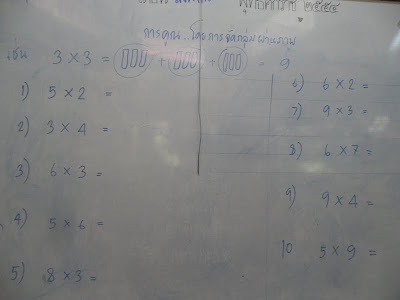 พุทธศักราช ๒๕๕๔
การคูณ..โดยการจัดกลุ่มผ่านภาพ
เช่น 3 × 3 = + + = 9
1) 5 × 2 =
2) 3 × 4 =
3) 6 × 3 =
4) 5 × 6 =
5) 8 × 3 =
6) 6 × 2 =
7) 9 × 3 =
8) 6 × 7 =
9) 9 × 4 =
10 5 × 9 =